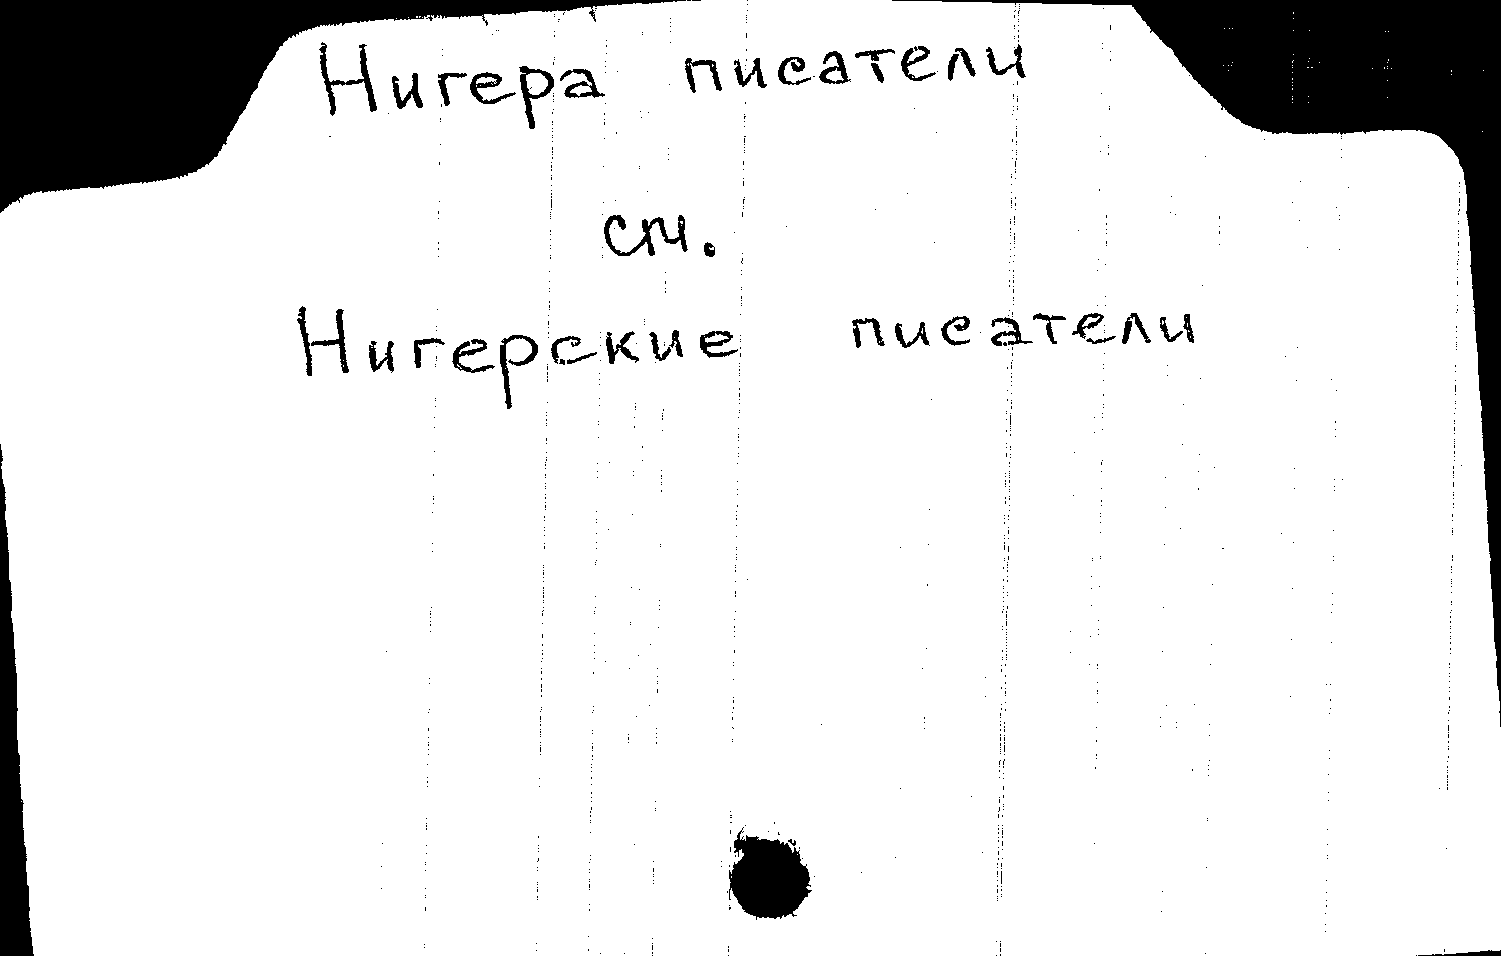 Нигера писатели
см.
Нигерские писатели